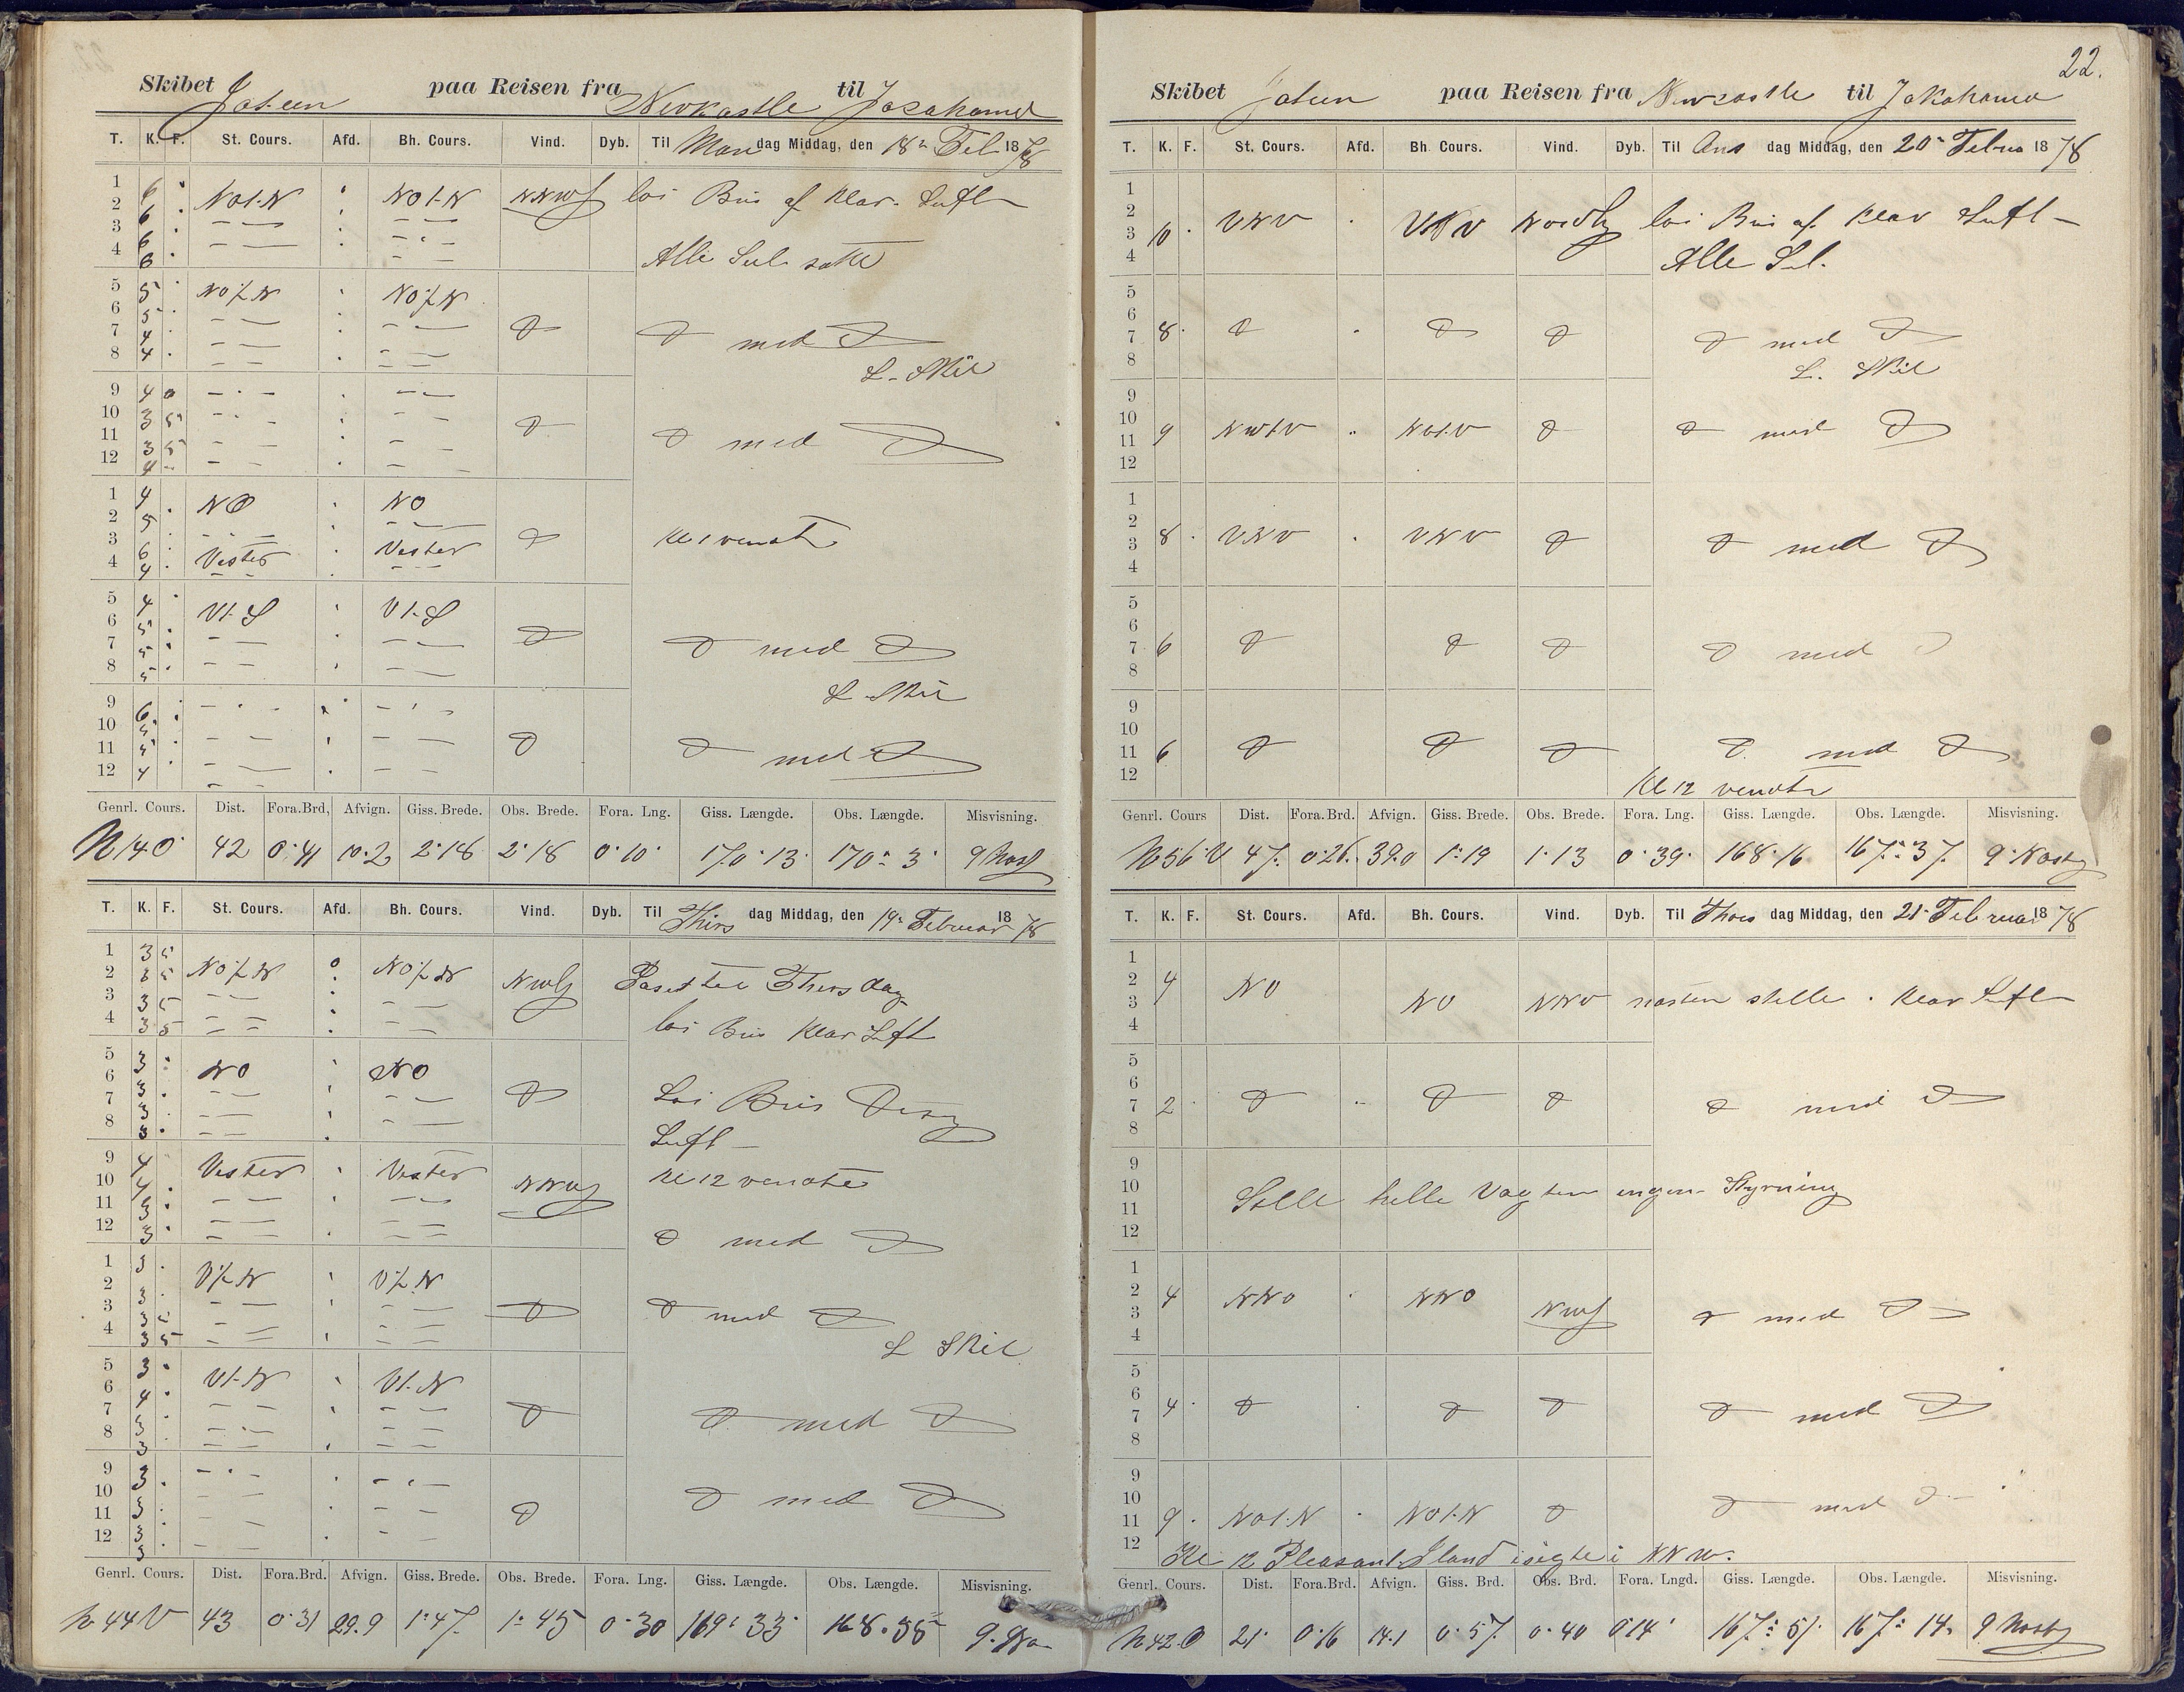 22.
Skibet Joteen paa Reisen fra Newkastle til Jocahama
T. K. F. St. Cours. Afd. Bh. Cours. Vind. Dyb. Til Man dag Middag, den 18 Feb 1878
1 6 NOt.N NOt.N NNW loi Bris af Klar Luft
2 6
3 6
4 6 Alle Seil satte
5 5 NO½N NO½N
6 5
7 4 D med D
8 4 L. Skil
9 4 0
10 3 5
11 3 5 D med D
12 4
1 4 NO NO
2 5
3 6 Kl 1 vendte
4 4 Vester Vester
5 4 Vt.S Vt.S
6 5
7 5 D med D
8 5 L. Skil
9 6
10 5
11 5 D med D
12 4
Genrl. Cours. Dist. Fora.Brd. Afvign. Giss. Brede. Obs. Brede. Fora. Lng. Giss. Længde. Obs. Længde. Misvisning.
N 14 O 42 0°41 10.2 2°18 2°18 0°10 170°13 170°3 9
T. K. F. St. Cours. Afd. Bh. Cours. Vind. Dyb. Til Thirs dag Middag, den 19 Februar 1878
1 3 5 NO½N NO½N
2 3 5 Thirsdag
3 3 5
4 3 5 loi Bris Klar Luft
5 3 NO NO
6 3
7 3 Loi Bris
8 3 Luft
9 4 Vester Vester NNW Kl 12 vendte
10 4
11 3
12 3 D med D
1 3 V½N V½N
2 3
3 3 5 D med D
4 3 5 L Skil
5 3 Vt.N Vt.N
6 4
7 3 D med D
8 3
9 3
10 3 D med D
11 3
12 3
Genrl. Cours. Dist. Fora.Brd. Afvign. Giss. Brede. Obs. Brede. Fora. Lng. Giss. Længde. Obs. Længde. Misvisning.
N 44 V 43 0°31 29.9 1°47 1°45 0°30 169°33 168.55 9
Skibet Joteen paa Reisen fra Newcastle til Jokohama
T. K. F. St. Cours. Afd. Bh. Cours. Vind. Dyb. Til Ons dag Middag, den 20 Februa 1878
1
2
3 10 VNV VNV loi Bris af Klar Luft
4 Alle Sel.
5
6
7 8 D D D D med D
8 L. Skil
9
10
11 9 D D med D
12
1
2
3 8 VNV VNV D D med D
4
5
6
7 6 D D D D med
8
9
10
11 6 D D D D med D
12 Kl 12 vendte
Genrl. Cours Dist. Fora.Brd. Afvign. Giss. Brede. Obs. Brede. Fora. Lng. Giss. Længde. Obs. Længde. Misvisning.
N 56 V 47. 0°26. 39.0 1°19 1°13 0°39 168°16 167°37. 9
T. K. F. St. Cours. Afd. Bh. Cours. Vind. Dyb. Til Thors dag Middag, den 21 Februar 1878
1
2 4 NO NO NNV næsten stille. Klar Luft
3
4
5
6
7 2 D D D D med D
8
9
10 Stille helle Vagten ingen Styrning
11
12
1
2 4 NNO NNO
3 D med D
4
5
6
7 4 D D D D med D
8
9
10
11 9 NOt.N NOt.N D D med D
12 Kl 12 Pleasant Iland i sigte i NNW.
Genrl. Cours. Dist. Fora.Brd. Afvign. Giss. Brd. Obs. Brd. Fora. Lngd. Giss. Længde. Obs. Længde. Misvisning.
N 42 O 21 0°16 14.1 0°57 0°40 0°14 167°51 167°14 9